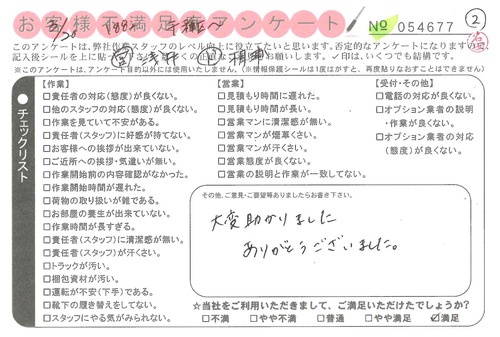 お客様不満足度アンケート
№ 054677
②
3/20
このアンケートは、弊社作業スタッフのレベル向上に役立てたいと思います。否定的なアンケートになりますので
※このアンケートは、アンケート目的以外には使用いたしません。(※情報保護シールは1度はがすと、再度貼りなおすことはできません)
チェックリスト
【作業】
□責任者の対応(態度)が良くない。
□他のスタッフの対応(態度)が良くない。
□作業を見ていて不安がある。
□責任者(スタッフ)に好感が持てない。
□お客様への挨拶が出来ていない。
□ご近所への挨拶・気遣いが無い。
□作業開始前の内容確認がなかった。
□作業開始時間が遅れた。
□荷物の取り扱いが雑である。
□お部屋の養生が出来ていない。
□作業時間が長すぎる。
□責任者(スタッフ)に清潔感が無い。
□責任者(スタッフ)が汗くさい。
□トラックが汚い。
□梱包資材が汚い。
□運転が不安(下手)である。
□靴下の履き替えをしてない。
□スタッフにやる気がみられない。
【営業】
□見積もり時間に遅れた。
□見積もり時間が長い。
□営業マンに清潔感が無い。
□営業マンが煙草くさい。
□営業マンが汗くさい。
□営業態度が良くない。
□営業の説明と作業が一致してない。
【受付・その他】
□電話の対応が良くない。
□オプション業者の説明
・作業が良くない。
□オプション業者の対応
(態度)が良くない。
その他、ご意見・ご要望等ありましたらお書き下さい。
大変助かりました
ありがとうございました。
☆当社をご利用いただきまして、ご満足いただけたでしょうか?
□不満 □やや不満 □普通 □やや満足 ☑満足